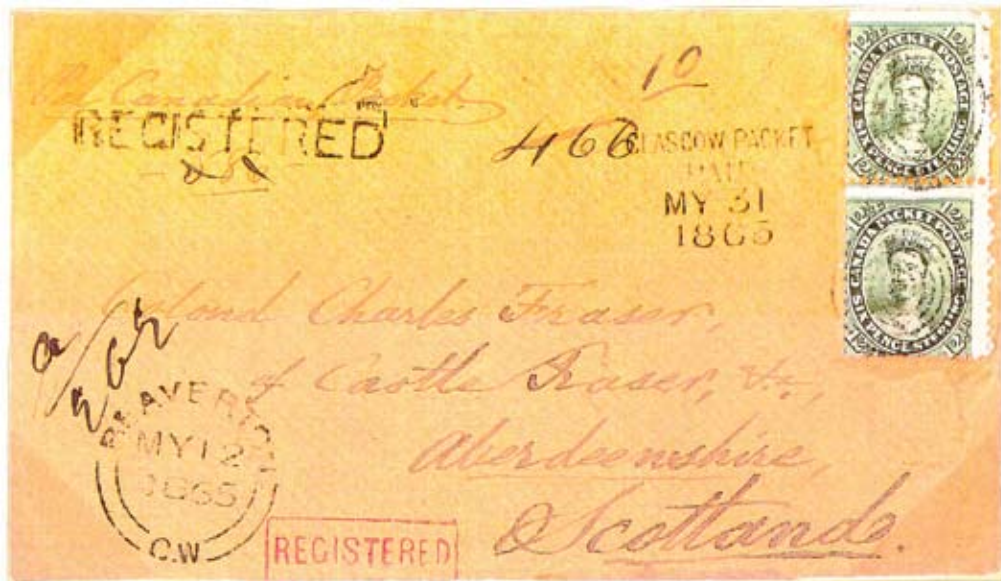 Per Canadian Packet.
REGISTERED
10
466
GLASGOW PACKET
PAID
MY 31
1865
CANADA PACKET POSTAGE
SIX PENCE STERLING
12½c
12½c
CANADA PACKET POSTAGE
SIX PENCE STERLING
12½c
12½c
Colonel Charles Fraser,
of Castle Fraser, &c,
Aberdeenshire,
Scotland.
BEAVERTON
MY 12
1865
C.W
REGISTERED